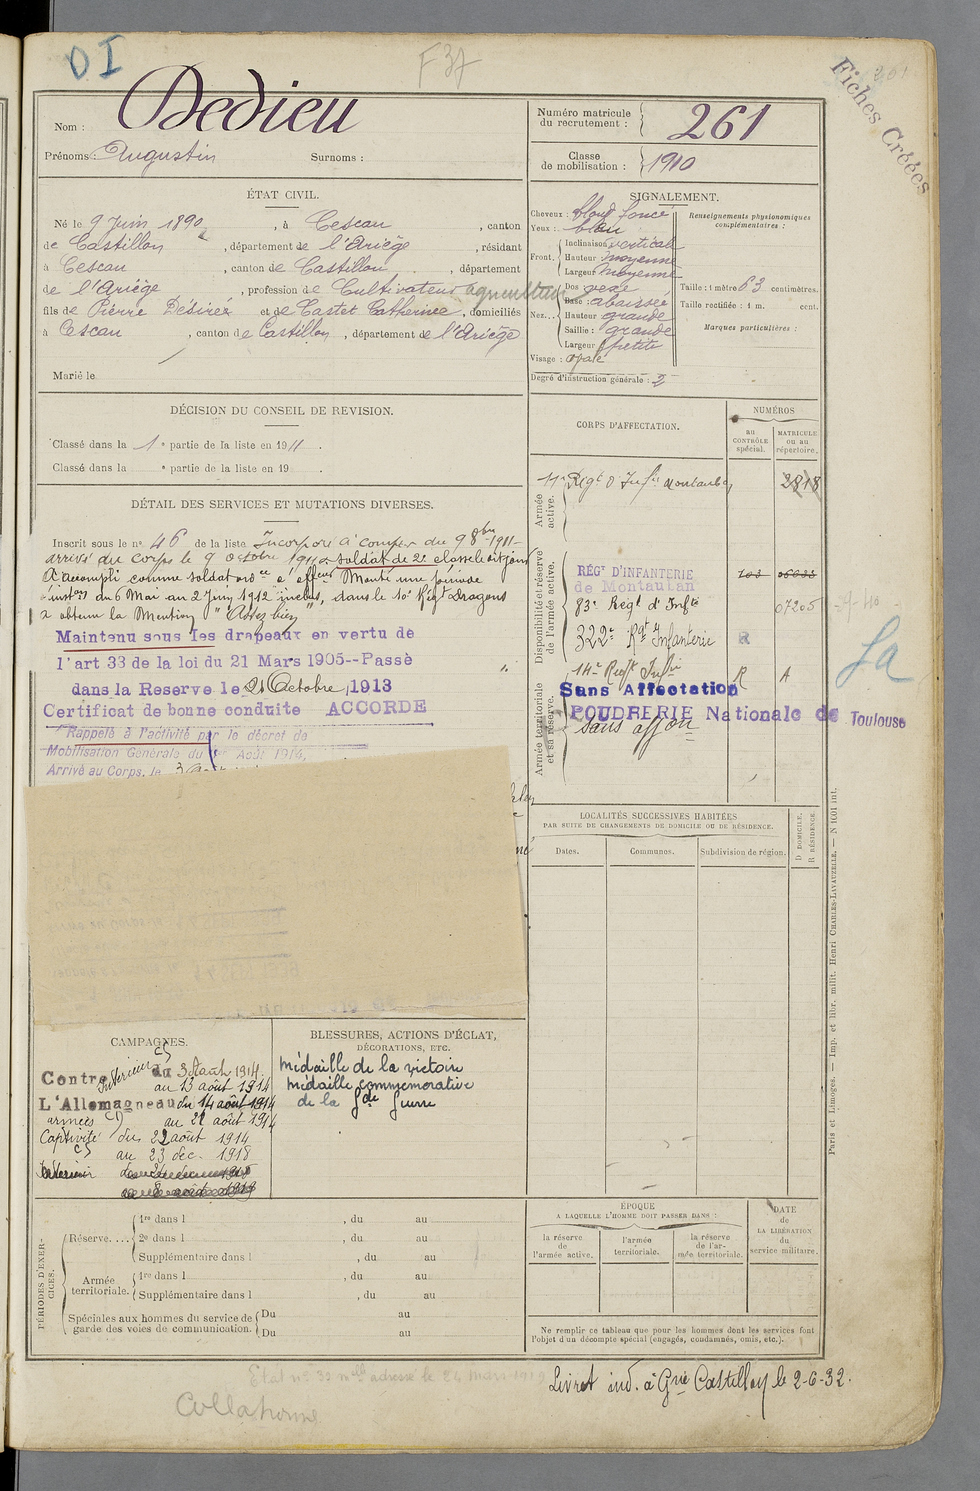 O I
F 37
Fiches Créées
261
Nom : Dedieu
Prénoms : Augustin Surnoms :
Numéro matricule
du recrutement : 261
Classe
de mobilisation : 1910
ÉTAT CIVIL.
Né le 9 Juin 1890, à Cescau, canton
de Castillon, département de l'Ariège, résidant
à Cescau, canton de Castillon, département
de l'Ariège, profession de Cultivateur agriculteur
fils de Pierre Désirée et de Castet Catherine, domiciliés
à Cescau, canton de Castillon, département de l'Ariège
Marié le
SIGNALEMENT.
Cheveux : blond foncé
Yeux : bleu
Front. Inclinaison vertical
Hauteur moyenne
Largeur moyenne
Nez... Dos vexe
Base : abaissée
Hauteur grande
Saillie : grande
Largeur petite
Visage : ovale
Renseignements physionomiques
complémentaires :
Taille : 1 mètre 63 centimètres.
Taille rectifiée : 1 m. cent.
Marques particulières :
Degré d'instruction générale : 2
DÉCISION DU CONSEIL DE REVISION.
Classé dans la 1e partie de la liste en 1911.
Classé dans la e partie de la liste en 19 .
DÉTAIL DES SERVICES ET MUTATIONS DIVERSES.
Inscrit sous le n° 46 de la liste Incorporé à compter du 9 8bre 1911
arrivé du corps le 9 octobre 1911 soldat de 2e classe le dit jour
A accompli comme soldat monté une période
du 6 Mai au 2 Juin 1912 inclus, dans le 10e Régt Dragons
a obtenu la Mention "Assez bien"
Maintenu sous les drapeaux en vertu de
l'art 33 de la loi du 21 Mars 1905--Passé
dans la Reserve le 21 Octobre 1913
Certificat de bonne conduite ACCORDE
Rappelé à l'activité par le décret de
Mobilisation Générale du 1er Août 1914,
Arrivé au Corps, le 3
CORPS D'AFFECTATION.
NUMÉROS
au
CONTRÔLE
spécial.
MATRICULE
ou au
répertoire.
Armée
active.
11e Régt d'Infie Montauban 2818
Disponibilité et réserve
de l'armée active.
RÉGt D'INFANTERIE
de Montauban
83e Régt d'Infie 07205
322e Rgt Infanterie R
14e Régt Infie R A
Armée territoriale
et sa réserve.
Sans Affectation
POUDRERIE Nationale de Toulouse
sans affon
9-40
La
LOCALITÉS SUCCESSIVES HABITÉES
PAR SUITE DE CHANGEMENTS DE DOMICILE OU DE RÉSIDENCE.
Dates.
Communes.
Subdivision de région.
D DOMICILE.
R RÉSIDENCE.
Paris et Limoges. — Imp. et libr. milit. Henri CHARLES-LAVAUZELLE. — N 1601 int.
CAMPAGNES.
Contre Intérieur du 3 Août 1914
au 13 août 1914
L'Allemagne du 14 août 1914
armées au 21 août 1914
Captivité du 22 août 1914
au 23 déc. 1918
Intérieur
BLESSURES, ACTIONS D'ÉCLAT,
DÉCORATIONS, ETC.
médaille de la victoire
médaille commemorative
de la Gde Guerre
PÉRIODES D'EXERCICES.
Réserve....
1re dans l , du au
2e dans l , du au
Supplémentaire dans l , du au
Armée
territoriale.
1re dans l , du au
Supplémentaire dans l , du au
Spéciales aux hommes du service de
garde des voies de communication.
Du au
Du au
ÉPOQUE
A LAQUELLE L'HOMME DOIT PASSER DANS :
la réserve
de
l'armée active.
l'armée
territoriale.
la réserve
de l'ar-
mée territoriale.
DATE
de
LA LIBÉRATION
du
service militaire.
Ne remplir ce tableau que pour les hommes dont les services font
l'objet d'un décompte spécial (engagés, condamnés, omis, etc.).
Etat n° 33 adressé le 24 mars 1919
Livret ind. à Gie Castillon le 2-6-32.